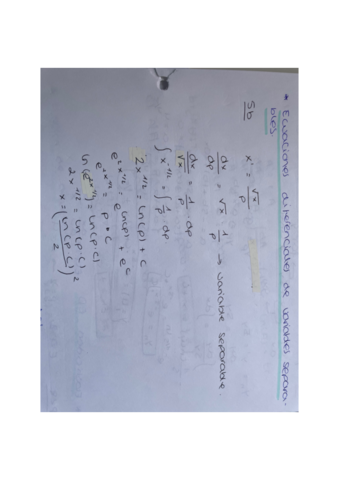 * Ecuaciones diferenciales de variables separa-
bles.
5b
x' = √x / p
dx/dp = √x · 1/p → variable separable.
dx/√x = 1/p · dp
∫ x^-1/2 = ∫ 1/p dp
2x^1/2 = ln(p) + c
e^2x^1/2 = e^ln(p) + e^c
e^2x^1/2 = p · c
ln(e^2x^1/2) = ln(p·c)
2x^1/2 = ln(p·c)
x = (ln(p·c)/2)^2